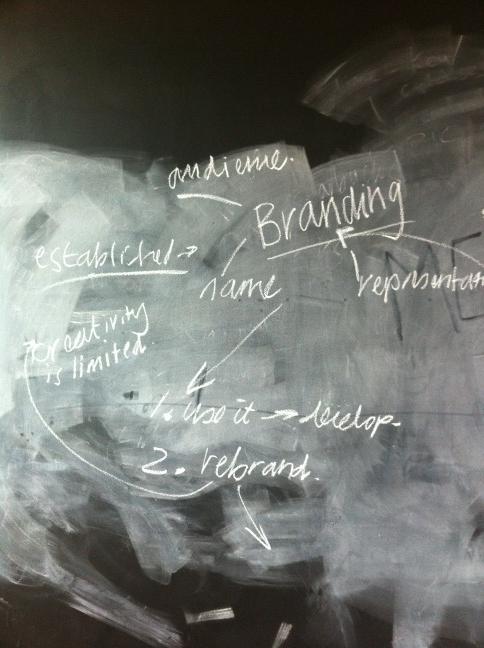 audience.
Branding
established →
name
representat
creativity
is limited.
1. Use it → develop.
2. rebrand.